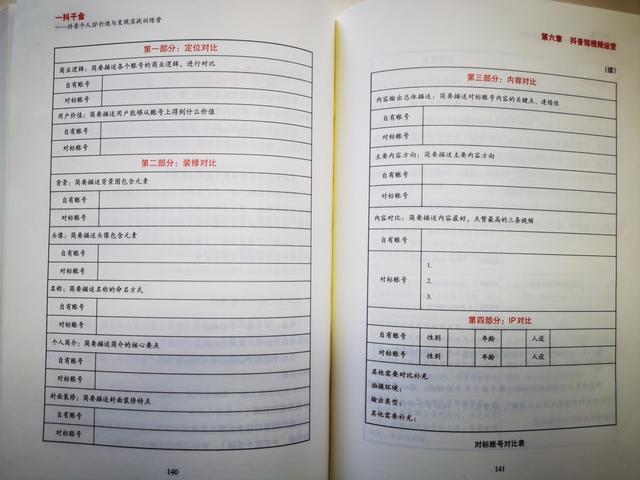 一抖千金
——抖音个人IP打造与变现实战训练营
第一部分：定位对比
商业逻辑：简要描述各个账号的商业逻辑，进行对比
自有账号
对标账号
用户价值：简要描述用户能够从账号上得到什么价值
自有账号
对标账号
第二部分：装修对比
背景：简要描述背景图包含元素
自有账号
对标账号
头像：简要描述头像包含元素
自有账号
对标账号
名称：简要描述名称的命名方式
自有账号
对标账号
个人简介：简要描述简介的核心要点
自有账号
对标账号
封面装修：简要描述封面装修特点
自有账号
对标账号
140
第六章 抖音短视频运营
（续）
第三部分：内容对比
内容输出总体描述：简要描述对标账号内容的关键点、连续性
自有账号
对标账号
主要内容方向：简要描述主要内容方向
自有账号
对标账号
内容对比：简要描述内容最好，点赞最高的三条视频
自有账号
对标账号
1.
2.
3.
第四部分：IP对比
自有账号 性别 年龄 人设
对标账号 性别 年龄 人设
其他需要对比补充
拍摄环境：
输出类型：
其他需要补充：
对标账号对比表
141